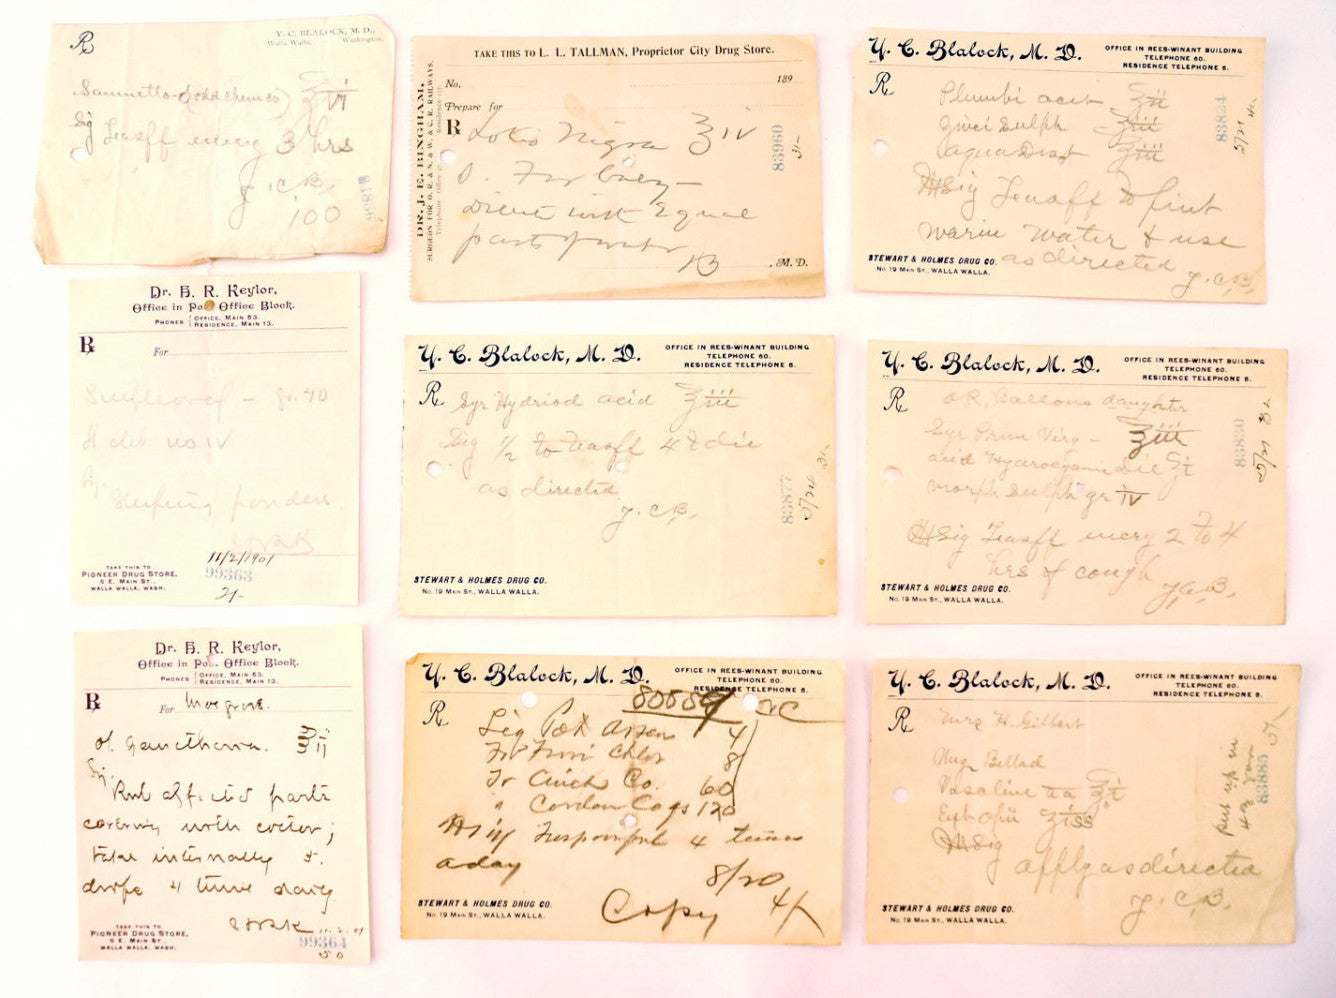 ℞
Y. C. BLALOCK, M. D.,
Walla Walla, Washington.
Sanmetto (odd chem co) ℥vi
Sig Teasff every 3 hrs
Y. C. B.
100
TAKE THIS TO L. L. TALLMAN, Proprietor City Drug Store.
No. 189
Prepare for
DR. J. E. BINGHAM,
SURGEON FOR O. R. & N. & W. & C. R. RAILWAYS.
℞ Lotio Nigra ℥iv
S.
Dilute with Equal
parts of water
B , M. D.
83960
Y. C. Blalock, M. D.
OFFICE IN REES-WINANT BUILDING
TELEPHONE 60.
RESIDENCE TELEPHONE 8.
℞
Plumbi acet ℥ii
Zinci Sulph ℥iii
aqua Dist ℥iii
Sig Teasff to pint
warm water & use
as directed
Y. C. B.
83824
STEWART & HOLMES DRUG CO.
No. 19 MAIN ST., WALLA WALLA.
Dr. H. R. Keylor,
Office in Post Office Block.
PHONES OFFICE, MAIN 53.
RESIDENCE, MAIN 13.
℞ For
Sulphonal - gr. 40
no. IV
Sg.
Sleeping powders
11/2/1901
99363
TAKE THIS TO
PIONEER DRUG STORE,
5 E. MAIN ST.,
WALLA WALLA, WASH.
Y. C. Blalock, M. D.
OFFICE IN REES-WINANT BUILDING
TELEPHONE 60.
RESIDENCE TELEPHONE 8.
℞ Syr Hydriod acid ℥iii
Sig ½ to teasff 4 x die
as directed
Y. C. B.
83877
STEWART & HOLMES DRUG CO.
No. 19 MAIN ST., WALLA WALLA.
Y. C. Blalock, M. D.
OFFICE IN REES-WINANT BUILDING
TELEPHONE 60.
RESIDENCE TELEPHONE 8.
℞ daughter
Syr Prun Virg - ℥iii
acid Hydrocyanic dil
morph Sulph gr iv
Sig Teasff every 2 to 4
hrs if cough
Y. C. B.
83830
STEWART & HOLMES DRUG CO.
No. 19 MAIN ST., WALLA WALLA.
Dr. H. R. Keylor,
Office in Post Office Block.
PHONES OFFICE, MAIN 53.
RESIDENCE, MAIN 13.
℞ For
ol Gaultheria. ℥ii
Sig.
Rub affected parts
covering with cotton;
take internally
drops 4 time daily
HRK 11-2-01
99364
50
TAKE THIS TO
PIONEER DRUG STORE,
5 E. MAIN ST.,
WALLA WALLA, WASH.
Y. C. Blalock, M. D.
OFFICE IN REES-WINANT BUILDING
TELEPHONE 60.
RESIDENCE TELEPHONE 8.
℞ Liq Pot Arsen 4
Tr Ferri Chlor 8
Tr Cinch Co. 60
" Cardam Co qs 120
Sig Teaspoonful 4 times
a day
8/20
Copy
STEWART & HOLMES DRUG CO.
No. 19 MAIN ST., WALLA WALLA.
Y. C. Blalock, M. D.
OFFICE IN REES-WINANT BUILDING
TELEPHONE 60.
RESIDENCE TELEPHONE 8.
℞ Mrs H. Gilbert
Ung Bellad
Vaseline aa ℥i
Ext Opii ℥iss
Sig
apply as directed
Y. C. B.
put up in
4 oz jar
83885
STEWART & HOLMES DRUG CO.
No. 19 MAIN ST., WALLA WALLA.